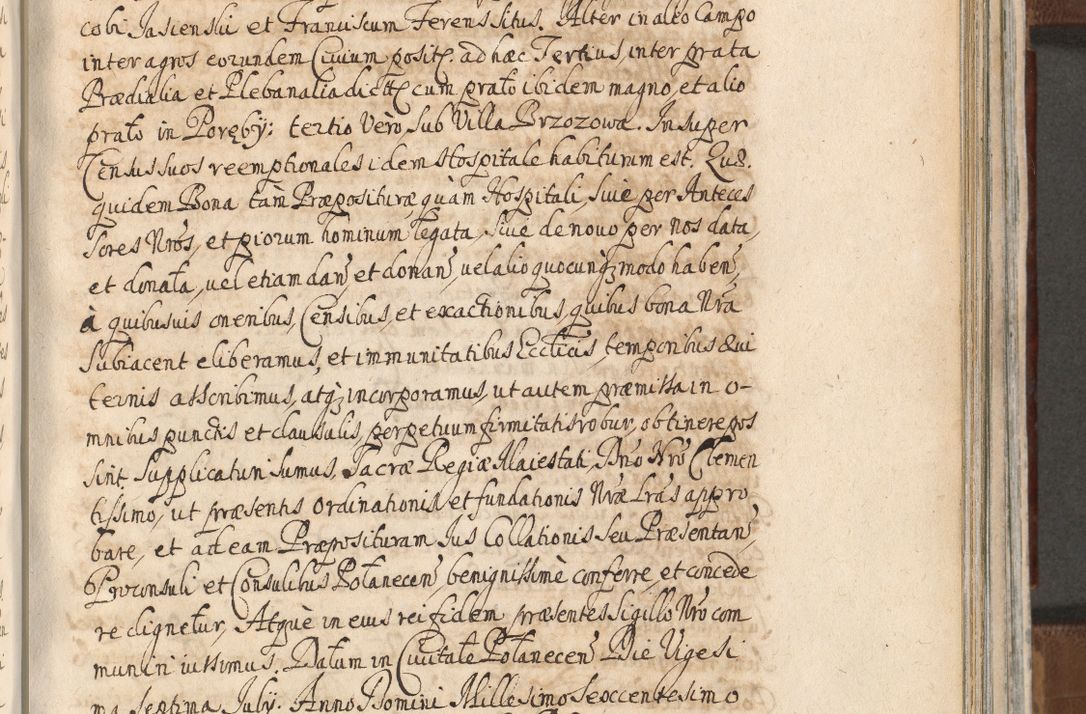 cobi Jasienski et Franciscum Ferens situs. Alter in alto Campo
inter agros eorundem Civium posit. ad hæc Tertius, inter prata
Prædialia et Plebanalia dictt cum prato ibidem magno, et alio
prato in Poręby: tertio vero, sub Villa Brzozowa. Insuper
Census suos reemptionales idem Hospitale habiturum est. Quæ.
quidem Bona tàm Præposituræ, quàm Hospitali, sive per Anteces
sores Nros, et piorum hominum legata, sive de novo per nos data,
et donata, vel etiam dan et donan, vel alio quocunq modo haben,
à quibusvis oneribus, Censibus, et exactionibus, quibus bona Nra
subiacent eliberamus, et immunitatibus Ecclicis, temporibus æui
ternis asscribimus, atq incorporamus, ut autem præmissa in o-
mnibus punctis et clausulis, perpetuum firmitatis robur, obtinere pos
sint. Supplicaturi sumus, Sacræ Regiæ Maiestati, Dno Nro Clemen
tissimo, ut præsentis ordinationis, et fundationis Nræ Lras appro
bare, et ad eam Præposituram Jus Collationis seu Præsentan
Proconsuli et Consulibus Potanecen, benignissimè conferre, et concede
re dignetur, Atquè in eius rei fidem præsentes Sigillo Nro com
muniri iussimus. Datum in Civitate Potanecen Die Vigesi
ma Septima July. Anno Domini Millesimo Sexcentesimo